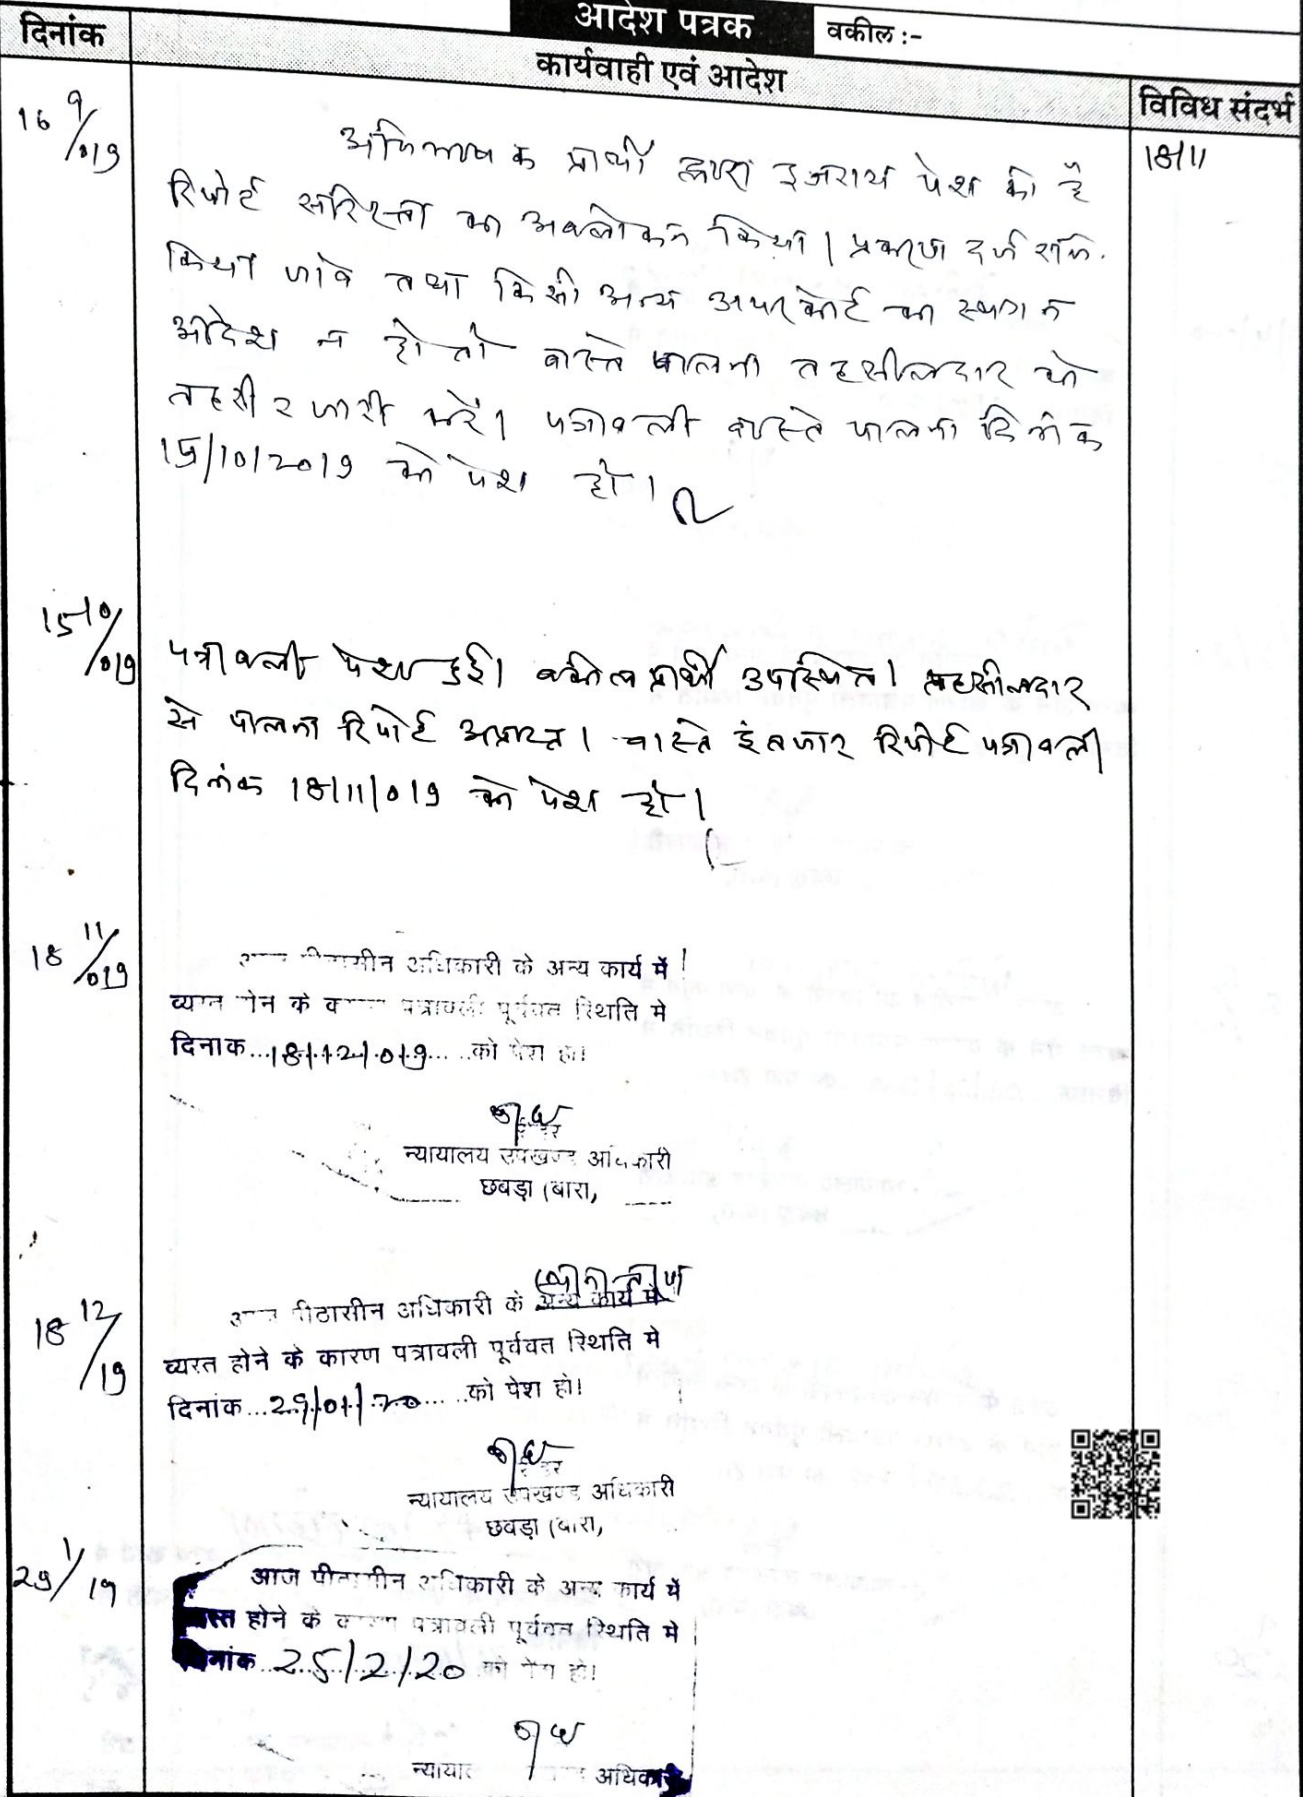 आदेश पत्रक
वकील :-
दिनांक
कार्यवाही एवं आदेश
विविध संदर्भ
16 9/019
18/11
अभिभाषक प्रार्थी द्वारा इजराय पेश की है
रिपोर्ट सरिस्ता का अवलोकन किया। प्रकरण दर्ज रजि.
किया जावे तथा किसी अन्य अपर कोर्ट का स्थगन
आदेश न हो तो वास्ते पालना तहसीलदार को
तहरीर जारी करें। पत्रावली वास्ते पालना दिनांक
15/10/2019 को पेश हो।
15 10/019
पत्रावली पेश हुई। वकील प्रार्थी उपस्थित। तहसीलदार
से पालना रिपोर्ट अप्राप्त। वास्ते इंतजार रिपोर्ट पत्रावली
दिनांक 18/11/019 को पेश हो।
18 11/019
पीठासीन अधिकारी के अन्य कार्य में
व्यस्त होने के कारण पत्रावली पूर्ववत स्थिति मे
दिनाक...18/12/019... ...को पेश हो।
न्यायालय उपखण्ड अधिकारी
छबड़ा (बारा,
18 12/19
आज पीठासीन अधिकारी के अन्य कार्य में
व्यस्त होने के कारण पत्रावली पूर्ववत स्थिति मे
दिनांक...29/01/20... ...को पेश हो।
न्यायालय उपखण्ड अधिकारी
छबड़ा (बारा,
29 1/19
आज पीठासीन अधिकारी के अन्य कार्य में
व्यस्त होने के कारण पत्रावली पूर्ववत स्थिति मे
दिनांक...25/2/20 को पेश हो।
अधिकारी